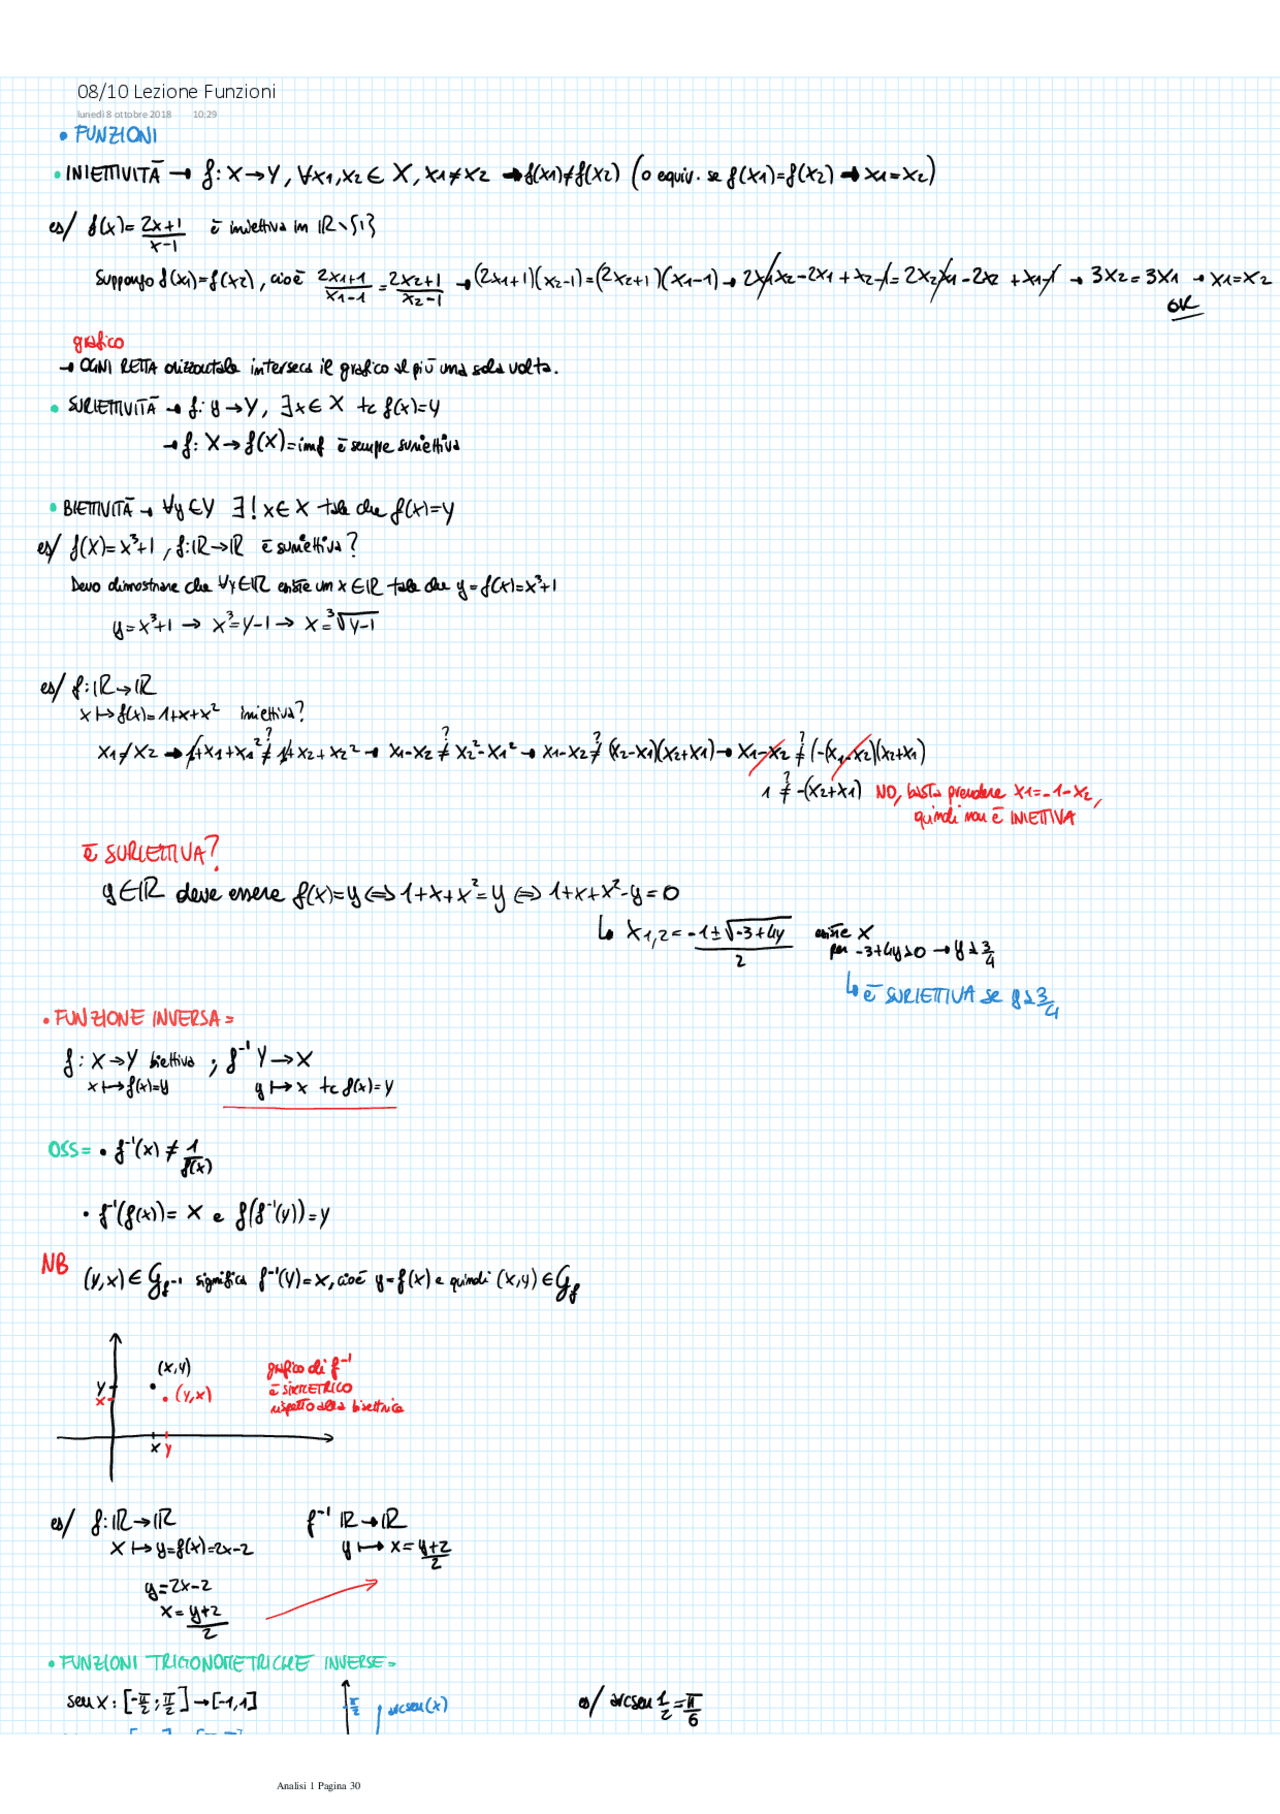 08/10 Lezione Funzioni
lunedì 8 ottobre 2018 10:29
• FUNZIONI
• INIETTIVITÀ → f: X→Y, ∀x1,x2 ∈ X, x1≠x2 → f(x1)≠f(x2) (o equiv. se f(x1)=f(x2) → x1=x2)
es/ f(x)= (2x+1)/(x-1) è iniettiva in ℝ∖{1}
Suppongo f(x1)=f(x2), cioè (2x1+1)/(x1-1) = (2x2+1)/(x2-1) → (2x1+1)(x2-1)=(2x2+1)(x1-1) → 2x1x2-2x1+x2-1=2x2x1-2x2+x1-1 → 3x2=3x1 → x1=x2
OK
grafico
→ OGNI RETTA orizzontale interseca il grafico al più una sola volta.
• SURIETTIVITÀ → f: y→Y, ∃x∈X tc f(x)=y
→ f: X→f(X)=imf è sempre suriettiva
• BIETTIVITÀ → ∀y∈Y ∃! x∈X tale che f(x)=y
es/ f(x)=x³+1, f:ℝ→ℝ è suriettiva?
Devo dimostrare che ∀y∈ℝ esiste un x∈ℝ tale che y=f(x)=x³+1
y=x³+1 → x³=y-1 → x=³√(y-1)
es/ f:ℝ→ℝ
x↦f(x)=1+x+x² iniettiva?
x1≠x2 → 1+x1+x1² ≠? 1+x2+x2² → x1-x2 ≠? x2²-x1² → x1-x2 ≠? (x2-x1)(x2+x1) → x1-x2 ≠? (-(x1-x2)(x2+x1)
1 ≠? -(x2+x1) NO, basta prendere x1=-1-x2,
quindi non è INIETTIVA
è SURIETTIVA?
y∈ℝ deve essere f(x)=y ⇔ 1+x+x²=y ⇔ 1+x+x²-y=0
↳ x1,2 = (-1±√(-3+4y))/2 esiste x
per -3+4y≥0 → y≥3/4
↳ è SURIETTIVA se y≥3/4
• FUNZIONE INVERSA =
f: X→Y biettiva ; f⁻¹ Y→X
x↦f(x)=y y↦x tc f(x)=y
OSS = • f⁻¹(x) ≠ 1/f(x)
• f⁻¹(f(x))= x e f(f⁻¹(y))=y
NB (y,x)∈Gf⁻¹ significa f⁻¹(y)=x, cioè y=f(x) e quindi (x,y)∈Gf
(x,y)
y
x
• (y,x)
grafico di f⁻¹
è SIMMETRICO
rispetto alla bisettrice
x y
es/ f:ℝ→ℝ f⁻¹ ℝ→ℝ
x↦y=f(x)=2x-2 y↦x=(y+2)/2
y=2x-2
x=(y+2)/2
• FUNZIONI TRIGONOMETRICHE INVERSE =
sen x: [-π/2; π/2]→[-1,1] π/2 arcsen(x) es/ arcsen 1/2 = π/6
Analisi 1 Pagina 30